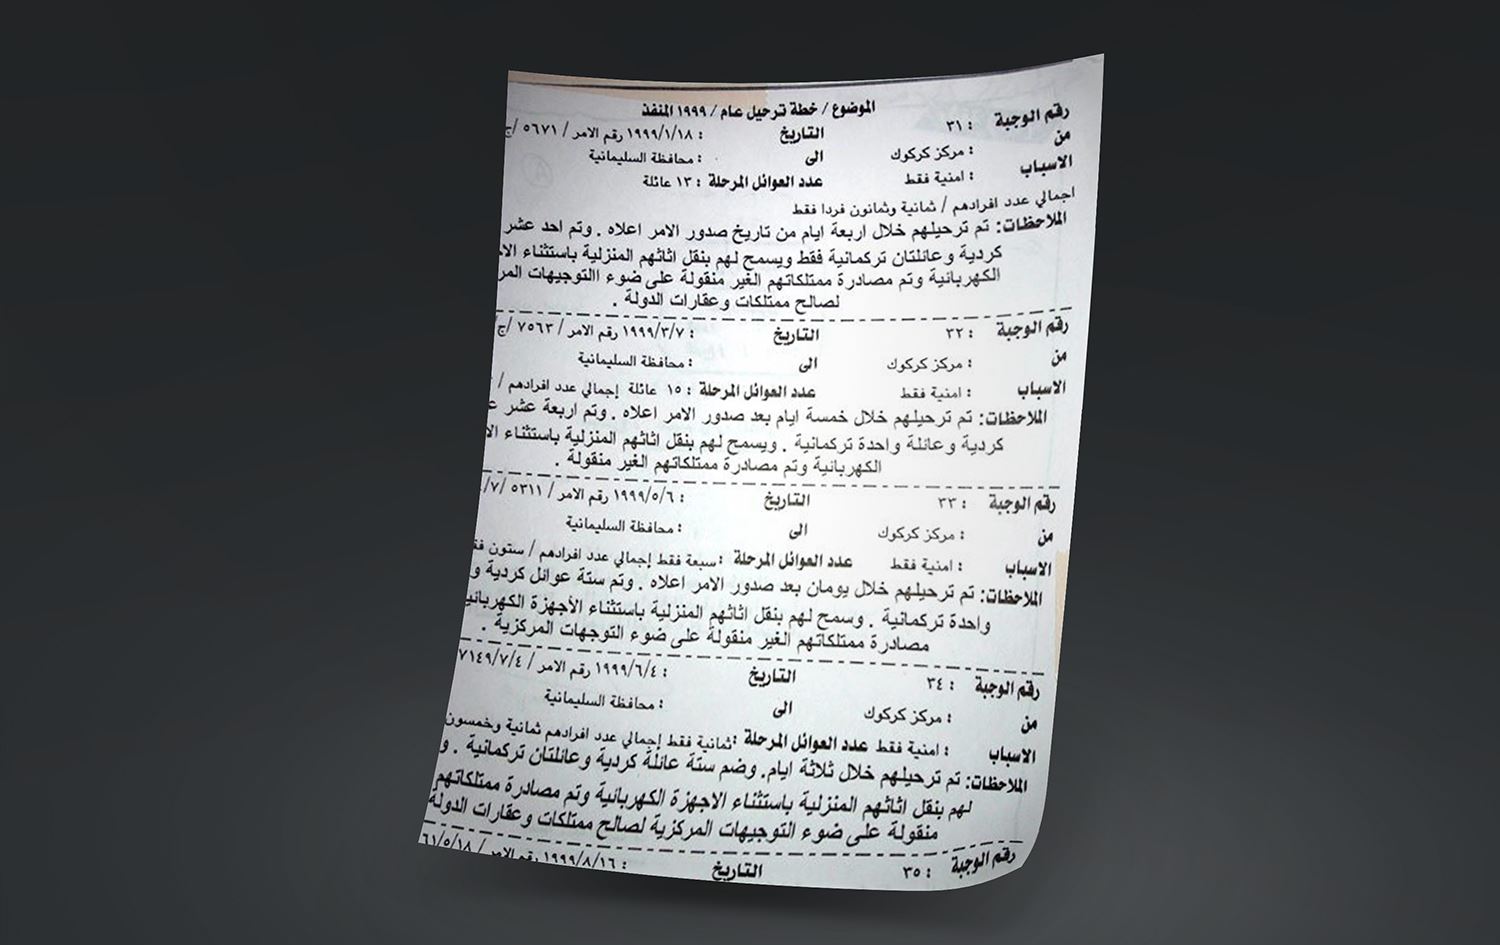 الموضوع / خطة ترحيل عام / ١٩٩٩ المنفذ
رقم الوجبة : ٣١ التاريخ : ١٩٩٩/١/١٨ رقم الامر / ٥٦٧١ /ج
من : مركز كركوك الى : محافظة السليمانية
الاسباب : امنية فقط عدد العوائل المرحلة : ١٣ عائلة
اجمالي عدد افرادهم / ثمانية وثمانون فردا فقط
الملاحظات: تم ترحيلهم خلال اربعة ايام من تاريخ صدور الامر اعلاه . وتم احد عشر
كردية وعائلتان تركمانية فقط ويسمح لهم بنقل اثاثهم المنزلية باستثناء
الكهربائية وتم مصادرة ممتلكاتهم الغير منقولة على ضوء االتوجيهات
لصالح ممتلكات وعقارات الدولة .
رقم الوجبة : ٣٢ التاريخ : ١٩٩٩/٣/٧ رقم الامر / ٧٥٦٣ /ج
من : مركز كركوك الى : محافظة السليمانية
الاسباب : امنية فقط عدد العوائل المرحلة : ١٥ عائلة إجمالي عدد افرادهم /
الملاحظات: تم ترحيلهم خلال خمسة ايام بعد صدور الامر اعلاه . وتم اربعة عشر
كردية وعائلة واحدة تركمانية . ويسمح لهم بنقل اثاثهم المنزلية باستثناء
الكهربائية وتم مصادرة ممتلكاتهم الغير منقولة .
رقم الوجبة : ٣٣ التاريخ : ١٩٩٩/٥/٦ رقم الامر / ٥٣١١ /٧/
من : مركز كركوك الى : محافظة السليمانية
الاسباب : امنية فقط عدد العوائل المرحلة : سبعة فقط إجمالي عدد افرادهم / ستون
الملاحظات: تم ترحيلهم خلال يومان بعد صدور الامر اعلاه . وتم ستة عوائل كردية و
واحدة تركمانية . وسمح لهم بنقل اثاثهم المنزلية باستثناء الأجهزة
مصادرة ممتلكاتهم الغير منقولة على ضوء التوجهات المركزية .
رقم الوجبة : ٣٤ التاريخ : ١٩٩٩/٦/٤ رقم الامر / ٧١٤٩/٧/٤
من : مركز كركوك الى : محافظة السليمانية
الاسباب : امنية فقط عدد العوائل المرحلة :ثمانية فقط إجمالي عدد افرادهم ثمانية وخمسون
الملاحظات: تم ترحيلهم خلال ثلاثة ايام. وضم ستة عائلة كردية وعائلتان تركمانية . و
لهم بنقل اثاثهم المنزلية باستثناء الاجهزة الكهربائية وتم مصادرة ممتلكاتهم
منقولة على ضوء التوجيهات المركزية لصالح ممتلكات وعقارات الدولة
رقم الوجبة : ٣٥ التاريخ : ١٩٩٩/٨/١٦ رقم الامر / ٦١/٥/١٨